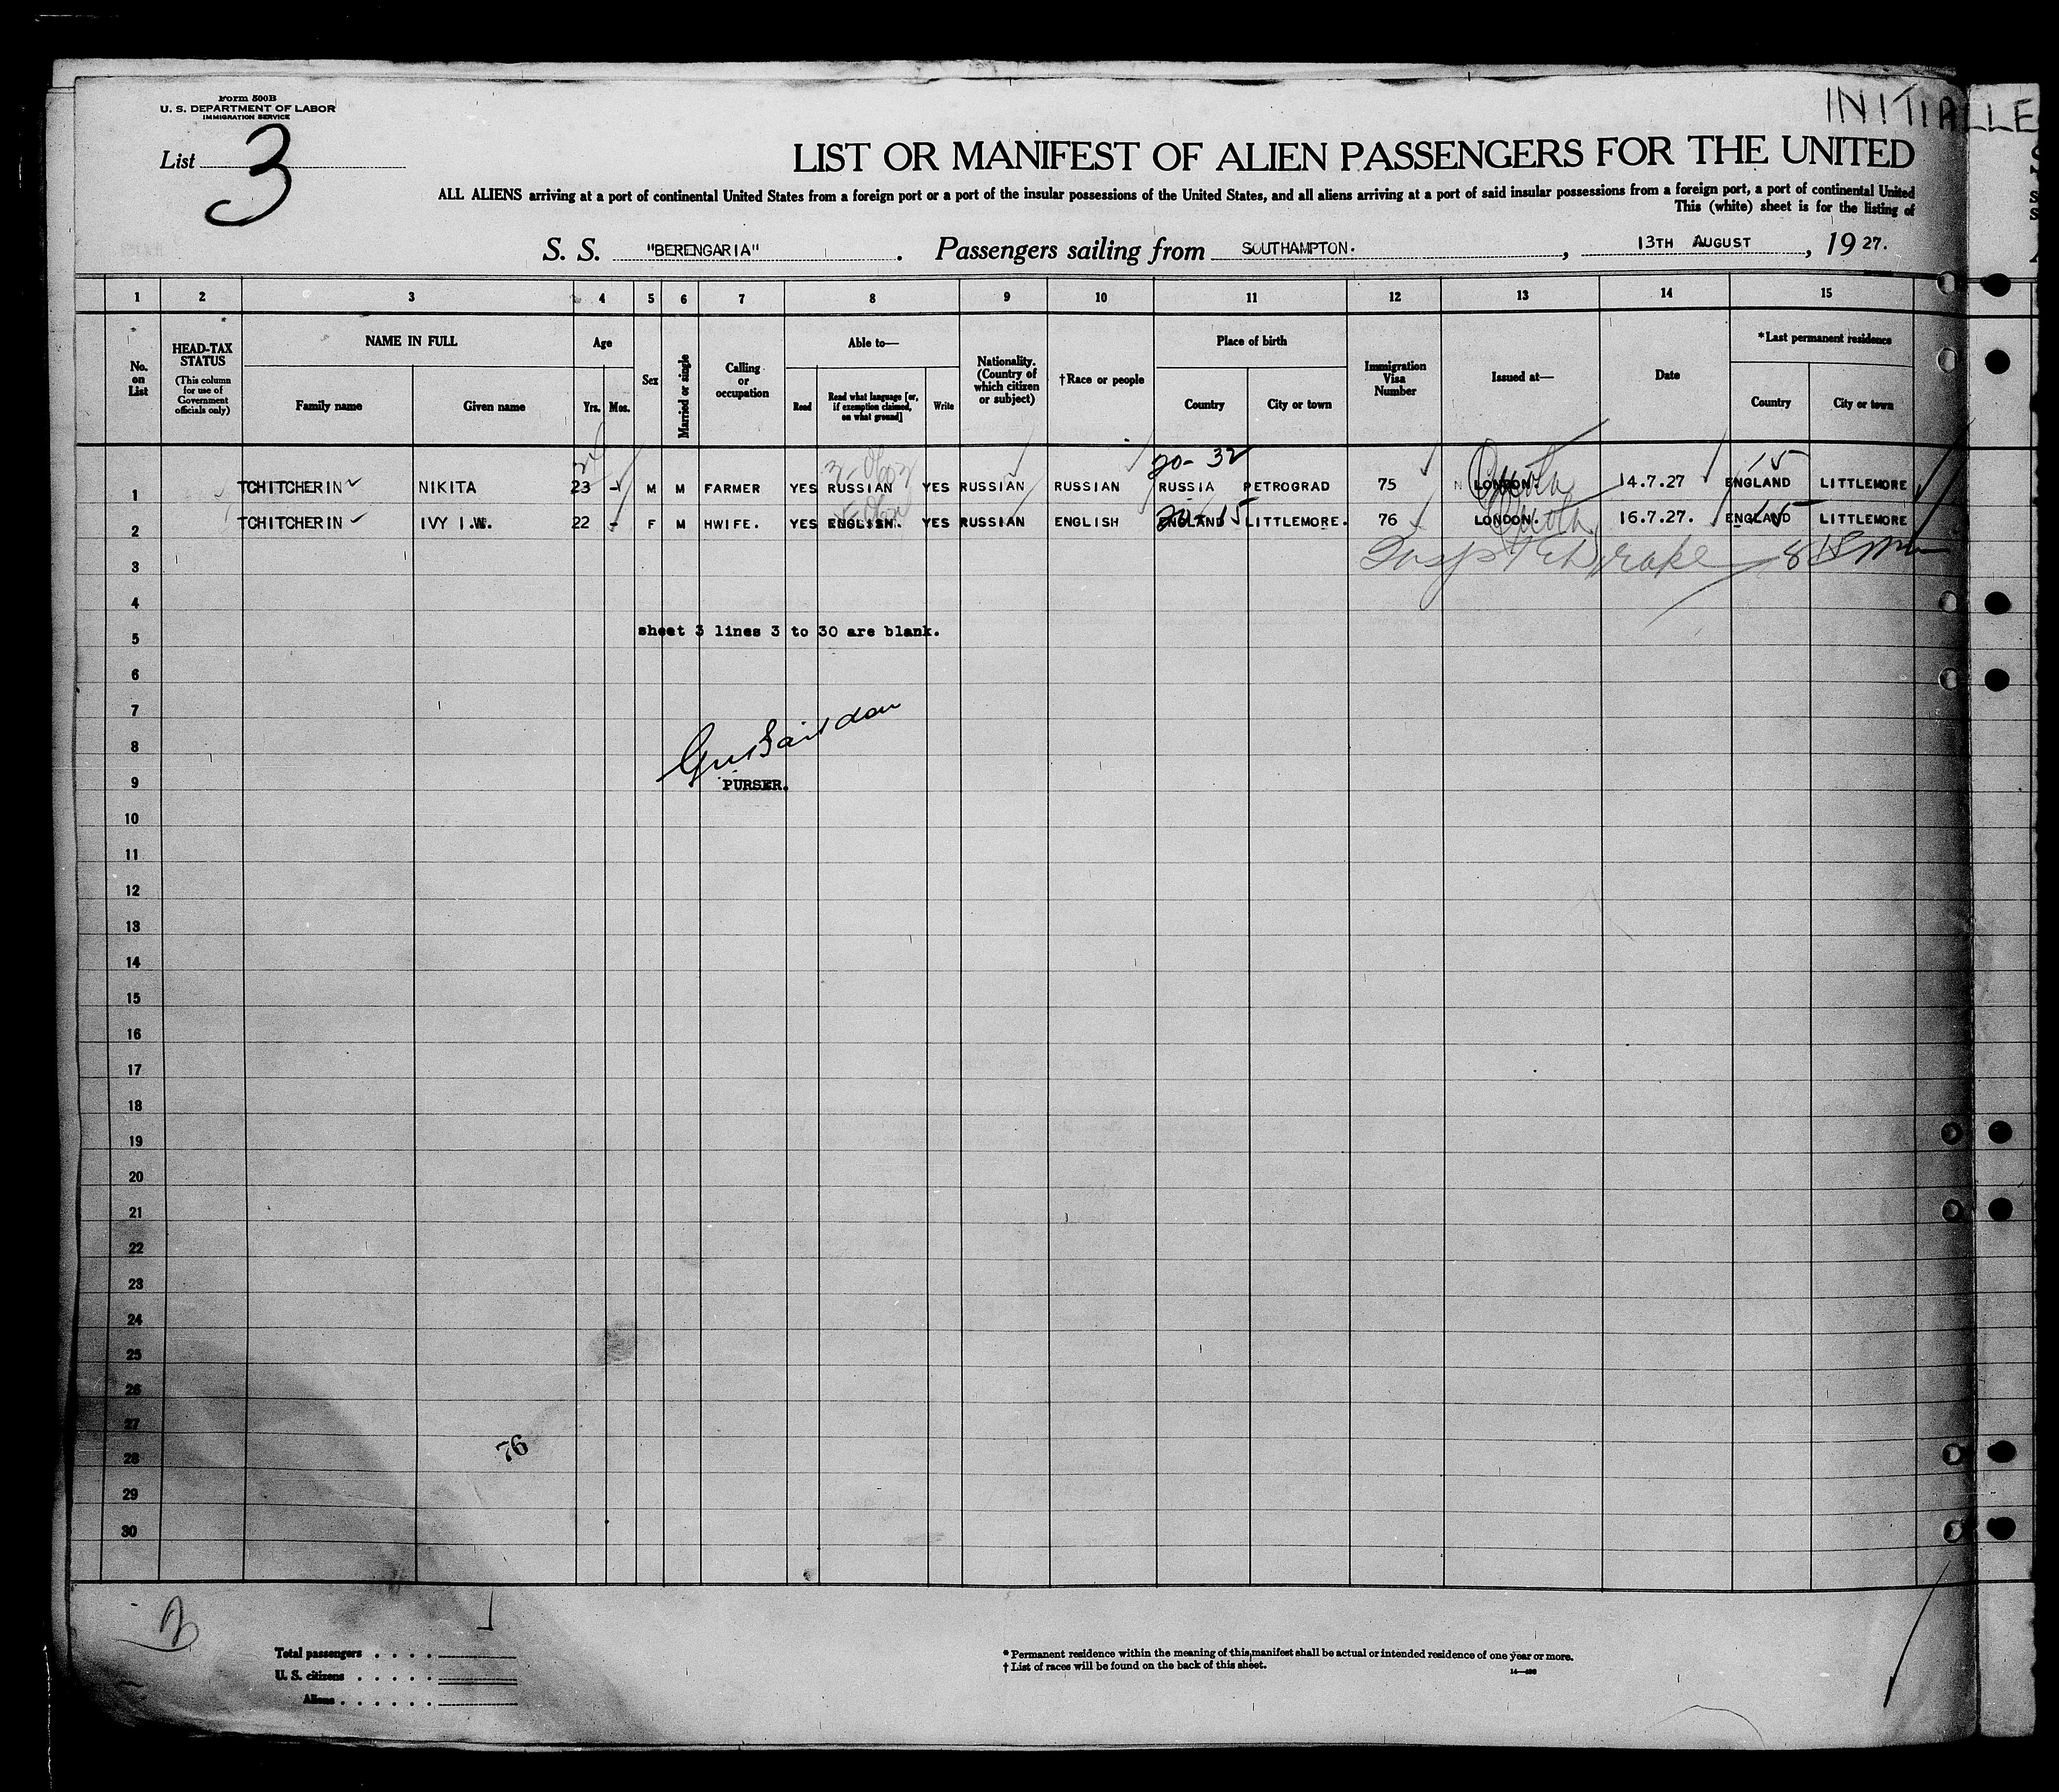 Form 500B
U. S. DEPARTMENT OF LABOR
IMMIGRATION SERVICE
INITIALLE
List 3
LIST OR MANIFEST OF ALIEN PASSENGERS FOR THE UNITED
ALL ALIENS arriving at a port of continental United States from a foreign port or a port of the insular possessions of the United States, and all aliens arriving at a port of said insular possessions from a foreign port, a port of continental United
This (white) sheet is for the listing of
S. S. "BERENGARIA" . Passengers sailing from SOUTHAMPTON. , 13TH AUGUST , 19 27.
1 2 3 4 5 6 7 8 9 10 11 12 13 14 15
No. on List
HEAD-TAX STATUS (This column for use of Government officials only)
NAME IN FULL
Family name Given name
Age
Yrs. Mos.
Sex
Married or single
Calling or occupation
Able to—
Read Read what language [or, if exemption claimed, on what ground] Write
Nationality. (Country of which citizen or subject)
†Race or people
Place of birth
Country City or town
Immigration Visa Number
Issued at—
Date
*Last permanent residence
Country City or town
20- 32 15
1 TCHITCHERIN NIKITA 23 - M M FARMER YES RUSSIAN YES RUSSIAN RUSSIAN RUSSIA PETROGRAD 75 LONDON. 14.7.27 ENGLAND LITTLEMORE
20 15 15
2 TCHITCHERIN IVY I.W. 22 - F M HWIFE. YES ENGLISH. YES RUSSIAN ENGLISH ENGLAND LITTLEMORE. 76 LONDON. 16.7.27. ENGLAND LITTLEMORE
3
4
5 sheet 3 lines 3 to 30 are blank.
6
7
8
9 PURSER.
10
11
12
13
14
15
16
17
18
19
20
21
22
23
24
25
26
27
76
28
29
30
Total passengers
U. S. citizens
Aliens
* Permanent residence within the meaning of this manifest shall be actual or intended residence of one year or more.
† List of races will be found on the back of this sheet.